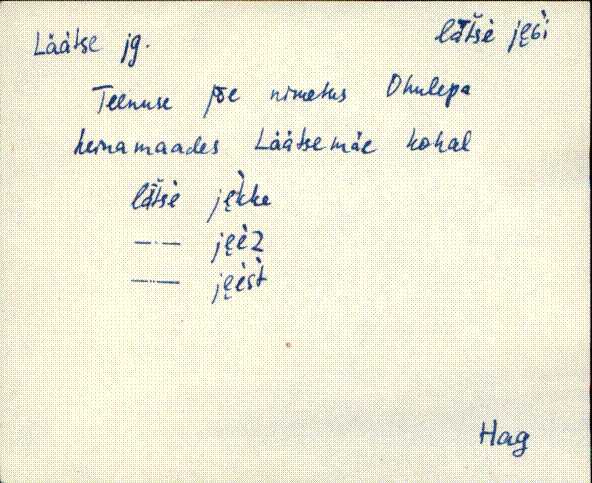 Läätse jg. lä̆tsè ję̀gi
Teenuse jõe nimetus Ohulepa
heinamaades Läätsemäe kohal
lä̆tsè ję̀kke
—··— ję̀èz
—··— ję̀èst
Hag